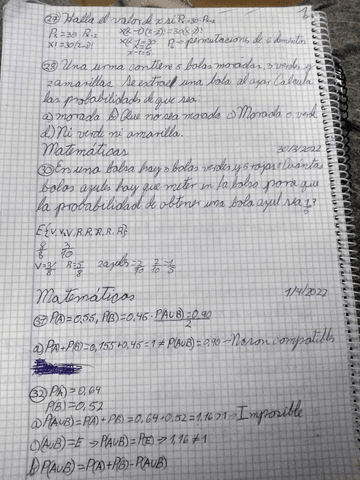 27) Halla el valor de x si Px=30·Px-2
Px=30·Px-2
x!=30(x-2)!
28) Una urna contiene 5 bolas moradas, 3 verdes y
2 amarillas. Se extrae una bola al azar. Calcula
las probabilidades de que sea:
a) morada b) Que no sea morada c) Morada o verde
d) Ni verde ni amarilla.
Matemáticas 30/3/2022
30) En una bolsa hay 3 bolas verdes y 5 rojas. ¿Cuántas
bolas azules hay que meter en la bolsa para que
la probabilidad de obtener una bola azul sea 1/5?
E{V,V,V,R,R,R,R,R}
V=3/8 R=5/8 2 azules=2/10 2/10=1/5
Matemáticas 1/4/2022
P(A)=0,55, P(B)=0,45. P(A∪B)=0,90
a) P(A)+P(B)=0,55+0,45=1≠P(A∪B)=0,90→No son compatibles
32) P(A)=0,64
P(B)=0,52
a) P(A∪B)=P(A)+P(B)=0,64+0,52=1,16>1→Imposible
c) (A∪B)=E→P(A∪B)=P(E)→1,16≠1
b) P(A∪B)=P(A)+P(B)-P(A∪B)